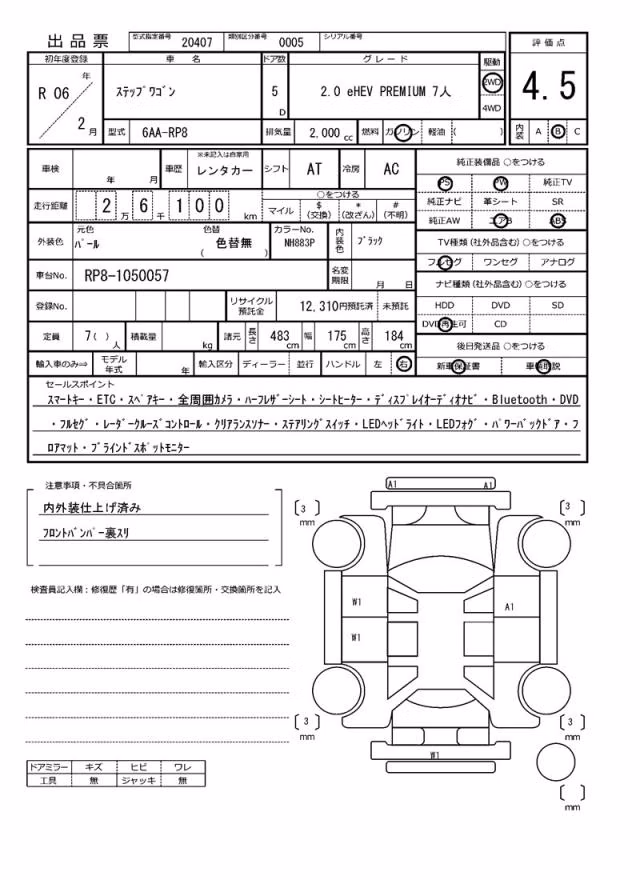 出品票 型式指定番号 20407 類別区分番号 0005 シリアル番号
評価点
4.5
初年度登録 車名 ドア数 グレード 駆動
R 06 年 2 月 ｽﾃｯﾌﾟﾜｺﾞﾝ 5 D 2.0 eHEV PREMIUM 7人 2WD
4WD
型式 6AA-RP8 排気量 2,000 cc 燃料 ガソリン 軽油 ( ) 内装 A B C
車検 年 月 車歴 ※未記入は自家用 レンタカー シフト AT 冷房 AC
純正装備品 ○をつける
PS PW 純正TV
純正ナビ 革シート SR
純正AW エアB ABS
走行距離 2 万 6 千 1 0 0 km
○をつける
マイル $(交換) *(改ざん) #(不明)
外装色 元色 ﾊﾟｰﾙ 色替 ( 色替無 ) カラーNo. NH883P 内装色 ﾌﾞﾗｯｸ
TV種類 (社外品含む) ○をつける
フルセグ ワンセグ アナログ
車台No. RP8-1050057 名変期限 月 日
ナビ種類 (社外品含む) ○をつける
HDD DVD SD
DVD再生可 CD
登録No. リサイクル預託金 12,310円預託済 未預託
定員 7( )人 積載量 kg 諸元 長さ 483 cm 幅 175 cm 高さ 184 cm
後日発送品 ○をつける
新車保証書 車輌取説
輸入車のみ⇒ モデル年式 年 輸入区分 ディーラー 並行 ハンドル 左 右
セールスポイント
ｽﾏｰﾄｷｰ・ETC・ｽﾍﾟｱｷｰ・全周囲ｶﾒﾗ・ﾊｰﾌﾚｻﾞｰｼｰﾄ・ｼｰﾄﾋｰﾀｰ・ﾃﾞｨｽﾌﾟﾚｲｵｰﾃﾞｨｵﾅﾋﾞ・Bluetooth・DVD
・ﾌﾙｾｸﾞ・ﾚｰﾀﾞｰｸﾙｰｽﾞｺﾝﾄﾛｰﾙ・ｸﾘｱﾗﾝｽｿﾅｰ・ｽﾃｱﾘﾝｸﾞｽｲｯﾁ・LEDﾍｯﾄﾞﾗｲﾄ・LEDﾌｫｸﾞ・ﾊﾟﾜｰﾊﾞｯｸﾄﾞｱ・ﾌ
ﾛｱﾏｯﾄ・ﾌﾞﾗｲﾝﾄﾞｽﾎﾟｯﾄﾓﾆﾀｰ
注意事項・不具合箇所
内外装仕上げ済み
ﾌﾛﾝﾄﾊﾞﾝﾊﾟｰ裏ｽﾘ
検査員記入欄：修復歴「有」の場合は修復箇所・交換箇所を記入
A1 A1
[ 3 ] mm [ 3 ] mm
W1 A1
W1
[ 3 ] mm [ 3 ] mm
W1
[ ] mm
ドアミラー キズ ヒビ ワレ
工具 無 ジャッキ 無